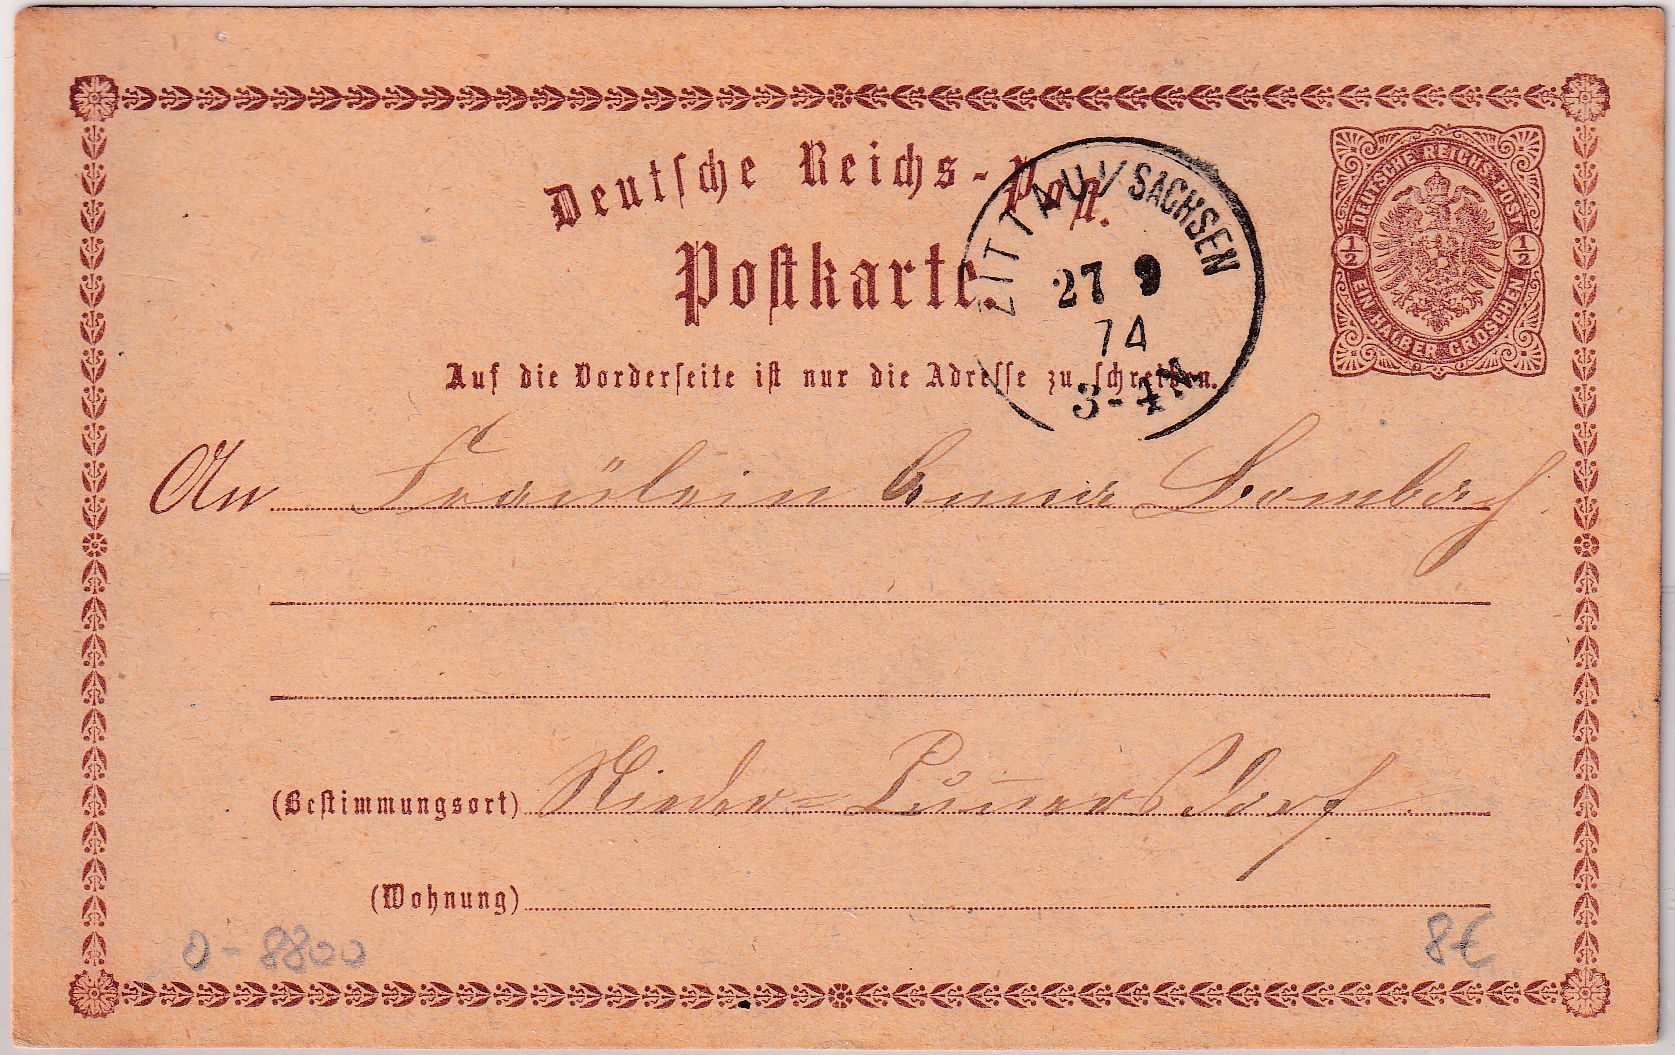 Deutsche Reichs-Post.
Postkarte.
ZITTAU I/SACHSEN
27 9
74
3-4N
DEUTSCHE REICHS-POST
½ ½
EIN HALBER GROSCHEN
Auf die Vorderseite ist nur die Adresse zu schreiben.
An Fräulein Anna
(Bestimmungsort) Nieder-
(Wohnung)
O-8800
8€